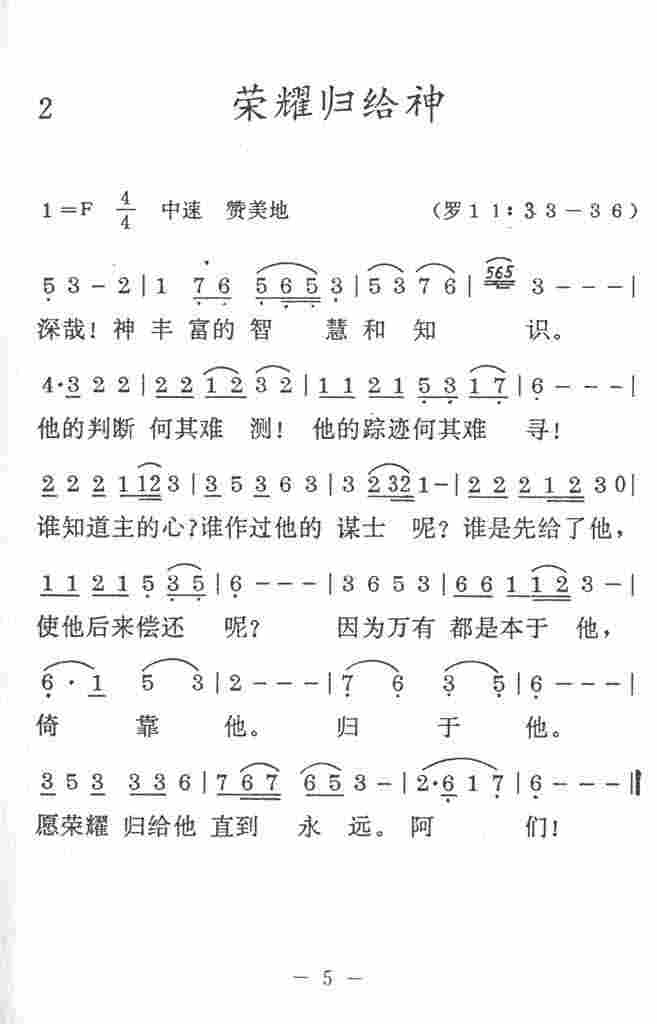 2 荣耀归给神
1=F 4/4 中速 赞美地 (罗11:33-36)
5 3 - 2 | 1 7 6 5 6 5 3 | 5 3 7 6 | 565 3 - - - |
深哉! 神 丰 富的 智 慧 和 知 识。
4·3 2 2 | 2 2 1 2 3 2 | 1 1 2 1 5 3 1 7 | 6 - - - |
他的判断 何其难 测! 他的踪迹何其难 寻!
2 2 2 1 12 3 | 3 5 3 6 3 | 3 2 32 1 - | 2 2 2 1 2 3 0 |
谁知道主的心?谁作过他的 谋士 呢? 谁是先给了他,
1 1 2 1 5 3 5 | 6 - - - | 3 6 5 3 | 6 6 1 1 2 3 - |
使他后来偿还 呢? 因为万有 都是本于 他,
6 · 1 5 3 | 2 - - - | 7 6 3 5 | 6 - - - |
倚 靠 他。 归 于 他。
3 5 3 3 3 6 | 7 6 7 6 5 3 - | 2·6 1 7 | 6 - - - ‖
愿荣耀 归给他 直到 永 远。 阿 们!
— 5 —